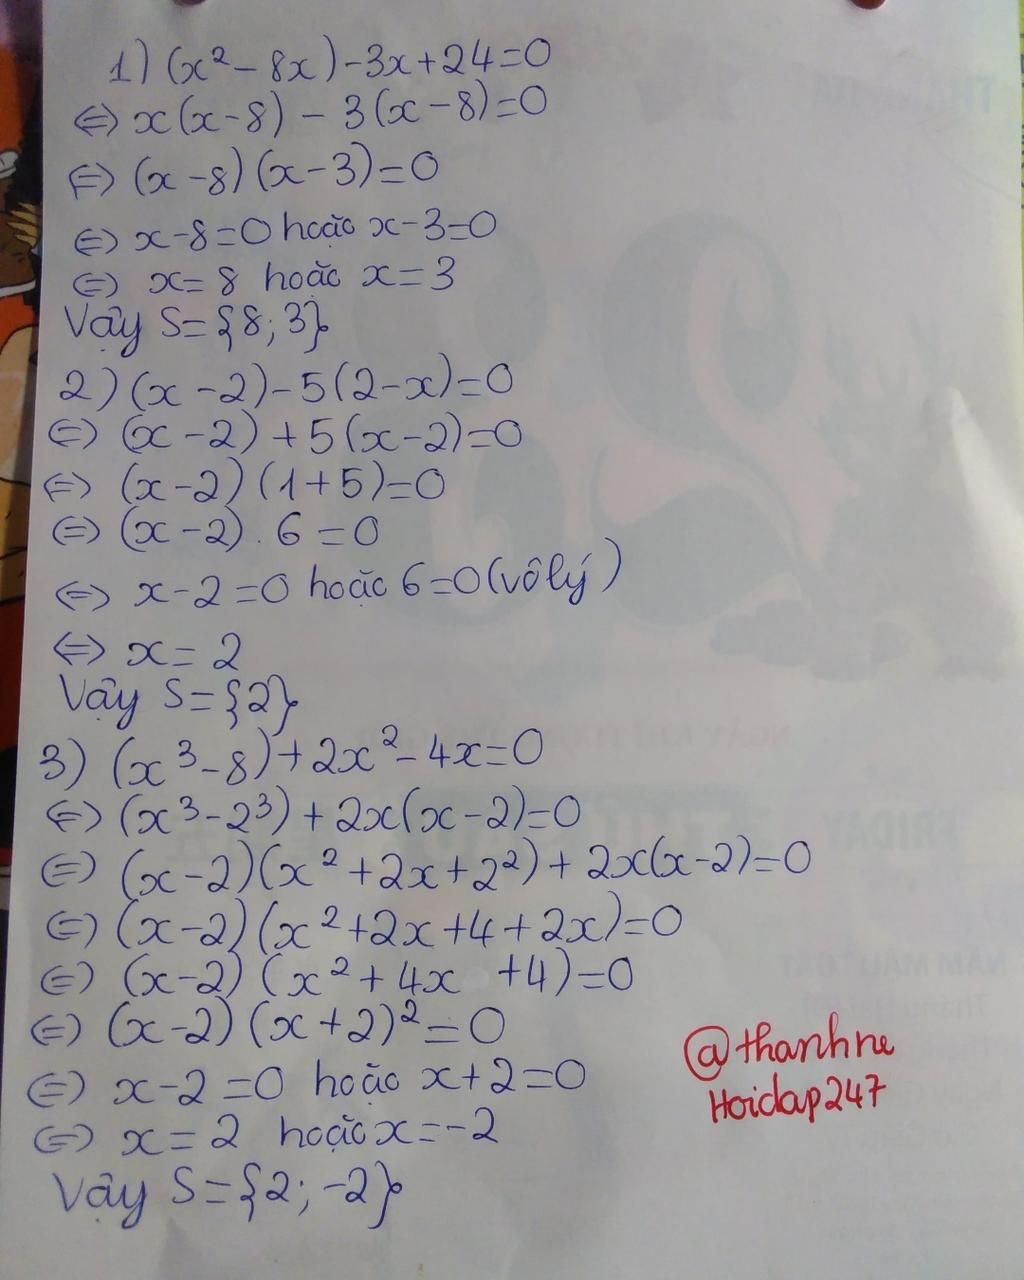 1) (x² - 8x) - 3x + 24 = 0
⇔ x(x - 8) - 3(x - 8) = 0
⇔ (x - 8)(x - 3) = 0
⇔ x - 8 = 0 hoặc x - 3 = 0
⇔ x = 8 hoặc x = 3
Vậy S = {8; 3}
2) (x - 2) - 5(2 - x) = 0
⇔ (x - 2) + 5(x - 2) = 0
⇔ (x - 2)(1 + 5) = 0
⇔ (x - 2) . 6 = 0
⇔ x - 2 = 0 hoặc 6 = 0 (vô lý)
⇔ x = 2
Vậy S = {2}
3) (x³ - 8) + 2x² - 4x = 0
⇔ (x³ - 2³) + 2x(x - 2) = 0
⇔ (x - 2)(x² + 2x + 2²) + 2x(x - 2) = 0
⇔ (x - 2)(x² + 2x + 4 + 2x) = 0
⇔ (x - 2)(x² + 4x + 4) = 0
⇔ (x - 2)(x + 2)² = 0
⇔ x - 2 = 0 hoặc x + 2 = 0
⇔ x = 2 hoặc x = -2
Vậy S = {2; -2}
@thanhne
Hoidap247
FRIDAY